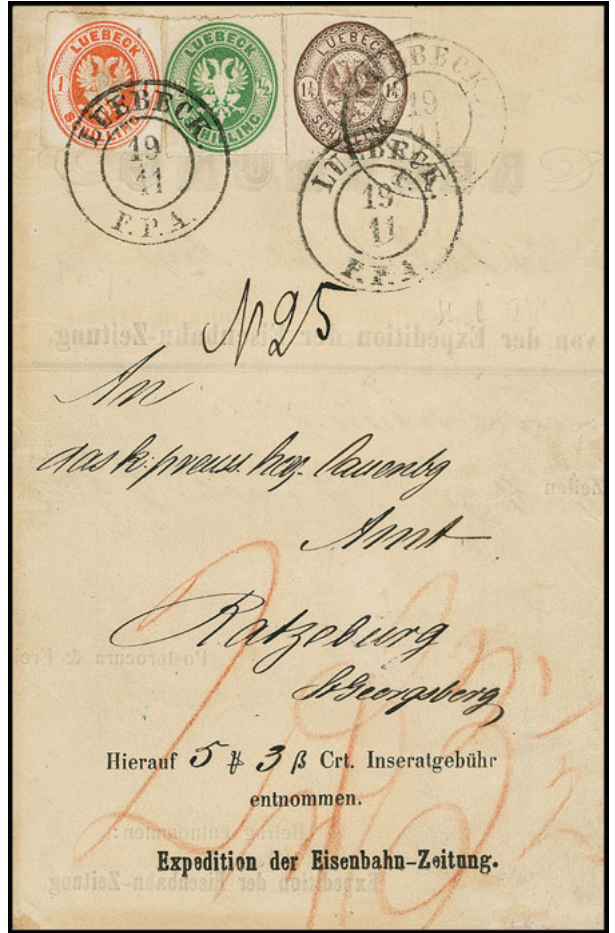 LUEBECK
1
SCHILLING
LUEBECK
½
SCHILLING
LUEBECK
1¼ 1¼
SCHILLING
LUEBECK.
19
11
F.P.A.
LUEBECK
19
11
LUEBECK.
19
11
F.P.A.
N 25
An
das k. preuss. hzg. Lauenbg
Amt
Ratzeburg
St Georgsberg
Hierauf 5 ₰ 3 β Crt. Inseratgebühr
entnommen.
Expedition der Eisenbahn-Zeitung.